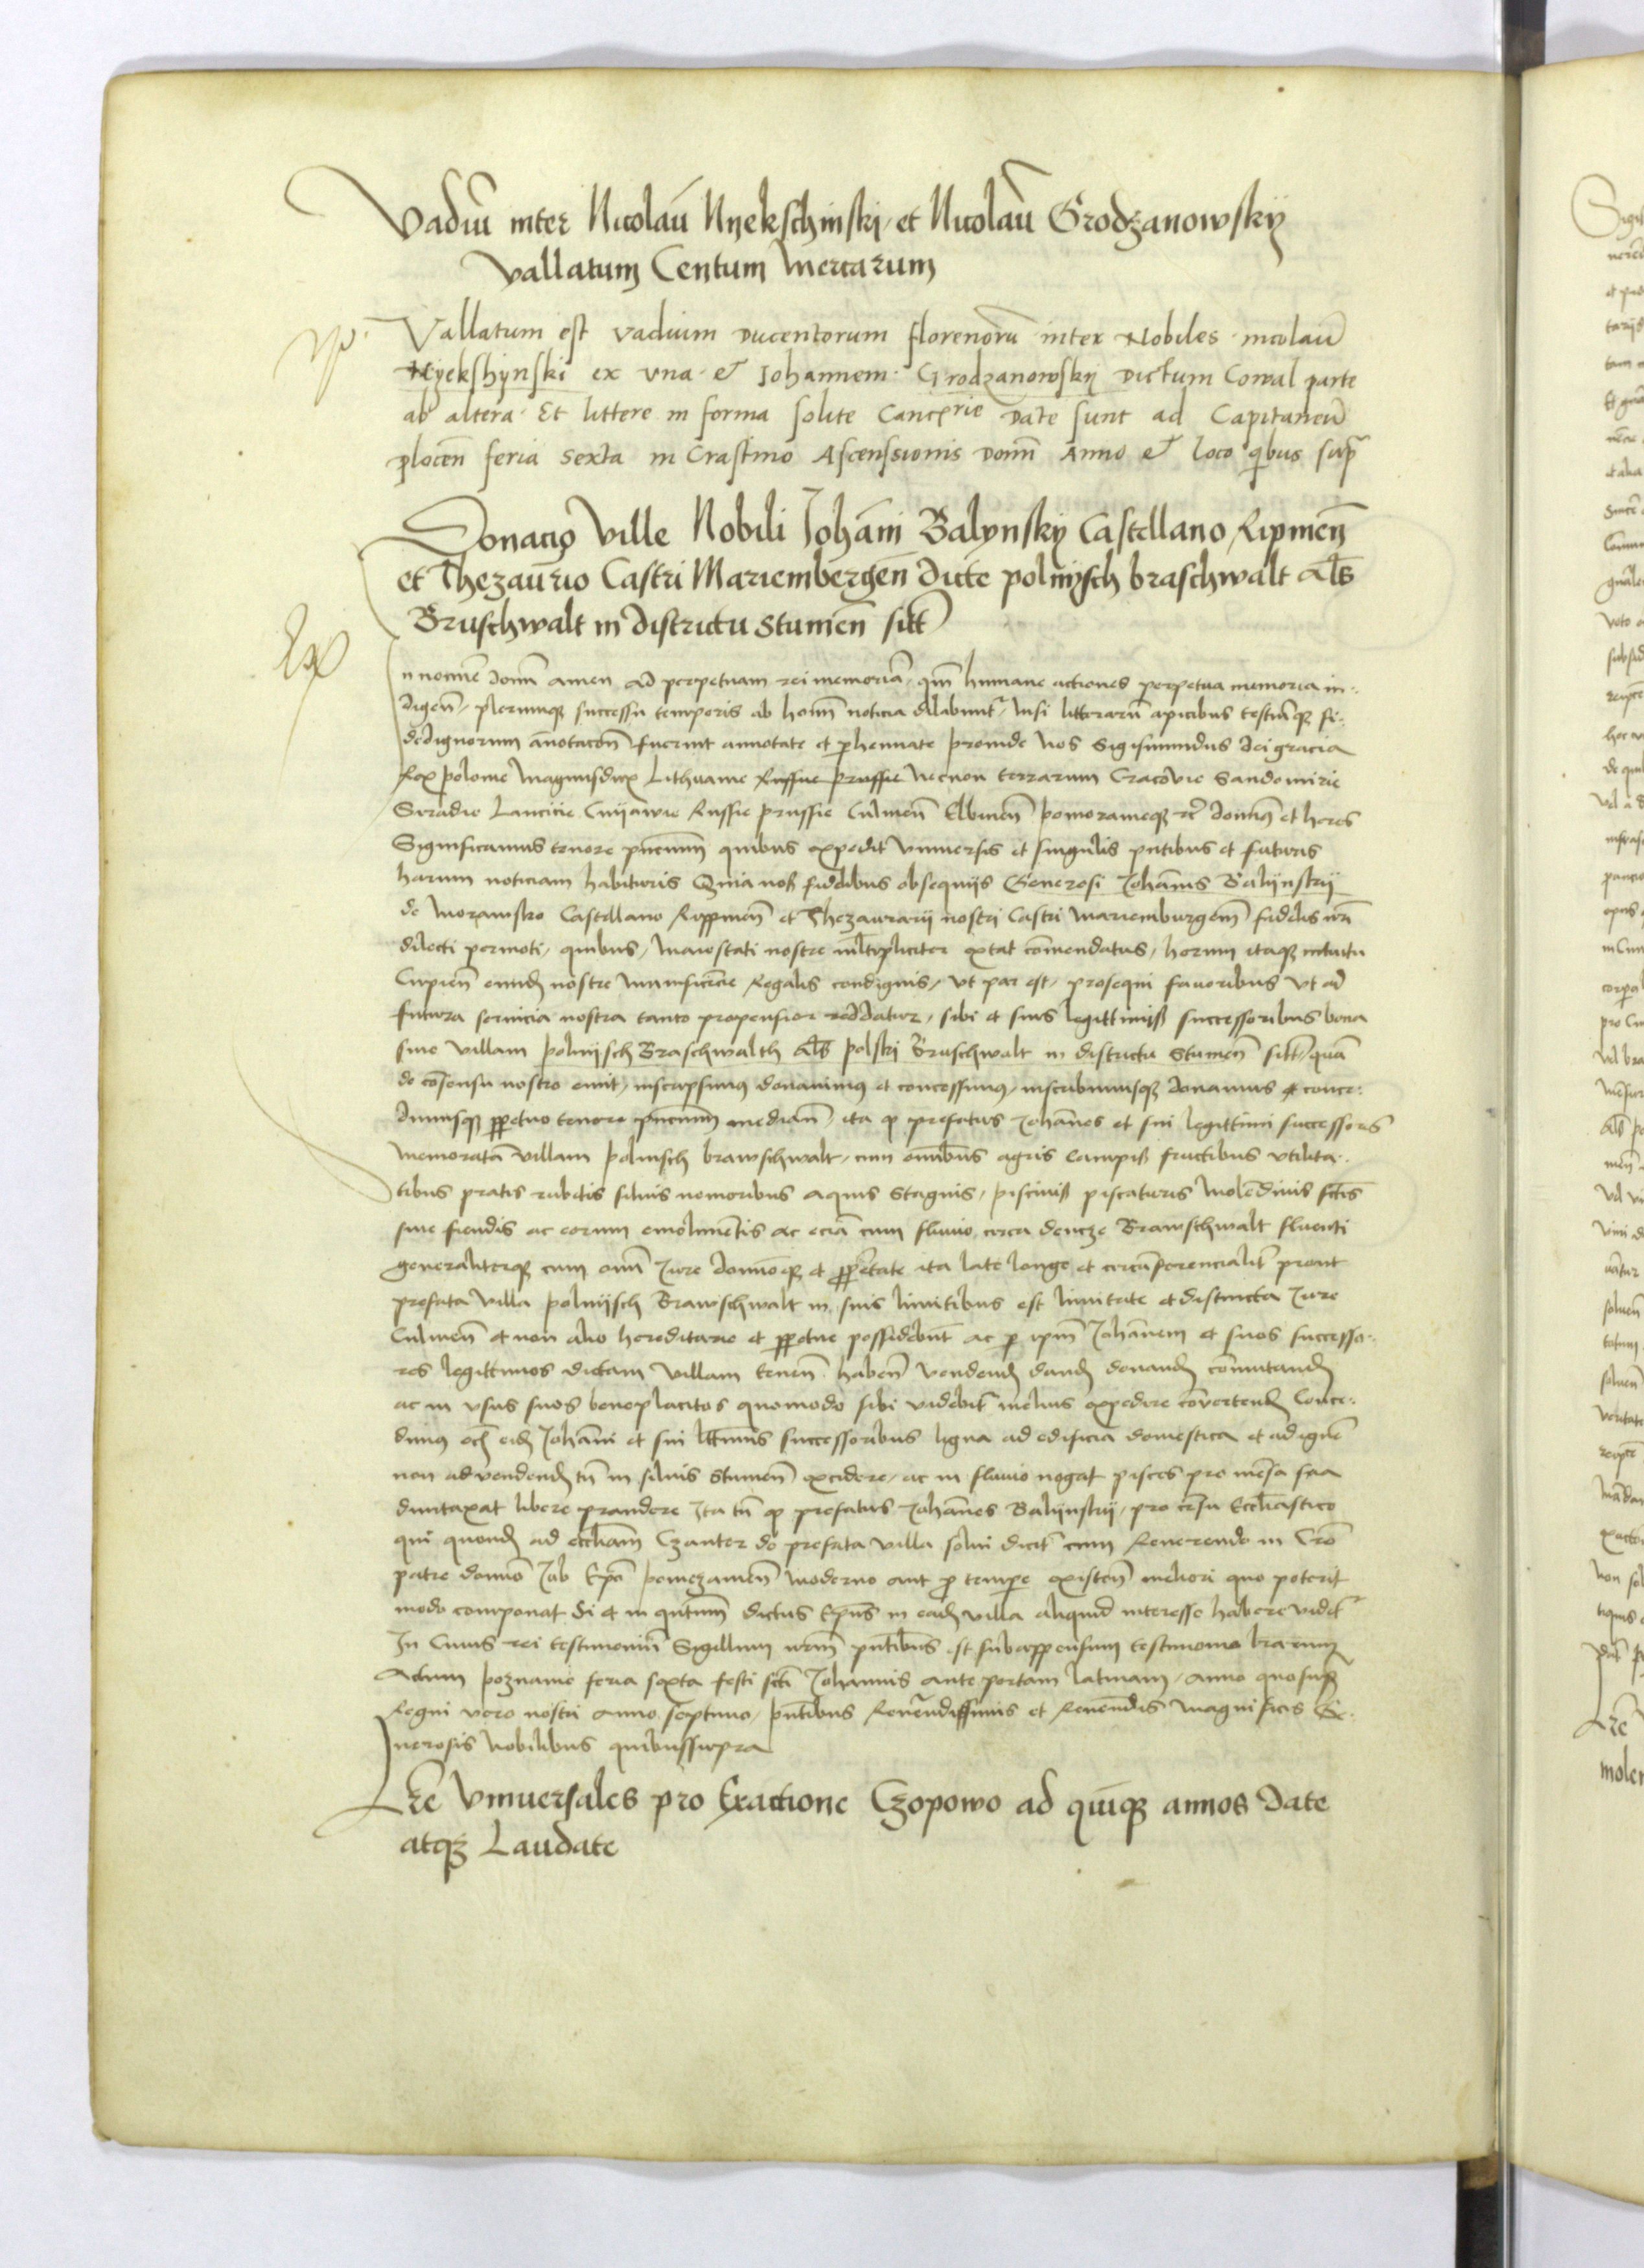 Vadiū inter Nicolaū Nyekschinski et Nicolaū Grodzanowskÿ
vallatum Centum Mercarum
Vallatum est vadium Ducentorum florenorū inter Nobiles nicolaū
Nyekshynski ex vna & Johannem Grodzanowskÿ Dictum Cowal parte
ab altera Et littere in forma solite Cancrie Date sunt ad Capitaneū
plocen̄ feria sexta in Crastino Ascenssionis Domī Anno & loco qibus supr̄
Donatio ville Nobili Johāni Balynskÿ Castellano Ripmen̄
et Thezaūrio Castri Mariembergen̄ dicte polnÿsch braschwalt Als̄
Bruschwalt in districtu Stumen̄ sitē
Ex
n nomīe domī amen Ad perpetuam rei memoriā qm̄ humane actiones perpetua memoria in
digen̄ plerumqz successu temporis ab homī noticia dilabuntr̄ Nisi litterarū apicibus testiūqz fi
dedignorum annotacōn̄ fuerint annotate et perhennate proinde Nos Sigismundus dei gracia
Rex polonie Magnusdux Lithuanie Russie prussie Necnon terrarum Cracovie Sandomirie
Siradie Lancicie Cuÿawie Russie prussie Culmen̄ Elbinen̄ pomoranieqz rc̄ domīs et heres
Significamus tenore pn̄cium̄ quibus expedit vniuersis et singulis pn̄tibus et futuris
harum noticiam habituris Quia nos fidelibus obsequÿs Generosi Johānis Balÿnskÿ
de Morawsko Castellano Rÿpmen̄ et Thezaurarÿ nostri Castri Mariemburgem̄ fidelis nr̄i
dilecti permoti quibus Maiestati nostre mltipliciter extat cōmendatus horum itaqz intuitu
Cupien̄ eundz nostre munificēcie Regalis condignis vt par est prosequi fauoribus vt ad
futura seruicia nostra tanto propensior reddatur sibi et suis legittimis successoribus bona
siue villam polnÿsch Braschwalth Als̄ polski Bruschwalt in districtu Stumen̄ sitā quā
de cōsensu nostro emit inscripsimus donauimus et concessimus inscribimusqz donamus et conce
dimusqz ppetuo tenore pn̄cium̄ median̄ ita q prefatus Johānes et sui legittimi successores
memoratā villam polnisch brawschwalt cum omībus agris campis fructibus vtilita
tibus pratis rubetis siluis nemoribus aquis Stagnis piscinis piscaturis molēdinis fctis̄
siue fiendis ac eorum emolimētis ac eciā cum fluuio circa dencze Brawschwalt fluenti
generaliterqz cum omī Jure domīoqz et pprietate ita late longe et circūferencialitr̄ prout
prefata villa polnÿsch Brawschwalt in suis limitibus est limitata et distincta Jure
Culmen̄ et non alio hereditarie et ppetue possidebūt ac p ipm̄ Johānem et suos successo
res legittimos dictam villam tenen̄ haben̄ vendendz dandz donandz cōmutandz
ac in vsus suos beneplacitos quomodo sibi videbit̄ melius expedire cōvertendz Conce
dimus eidz Johāni et sui lttimis successoribus ligna ad edificia domestica et ad ignē
non ad vendendz tn̄ in siluis Stumen̄ excidere ac in fluuio nogat pisces pro mēsa sua
duntaxat libere prandere Ita tn̄ q prefatus Johānes Balÿnskÿ pro cēsu Eccliastico
qui quondz ad eccliam̄ Czanter de prefata villa solui dicit̄ cum Reuerendo in Cr̄o
patre domīo Job Ep̄o pomezamen̄ moderno aut p tempe existen̄ meliori quo poterit
modo componat Si et in qntum̄ dictus Ep̄us in eadz villa aliquid interesse habere videt̄
In Cuius rei testimoniū Sigillum nr̄m pn̄tibus est subappensum testimonio lrarum
Actum poznanie feria sexta festi scti Johannis ante portam latinam Anno quo supra
Regni vero nostri anno septimo pn̄tibus Reuerendissimis et Reuerendis magnificis Ge
nerosis Nobilibus quibussupra
Lr̄e Vniuersales pro Exactione Czopowo ad quiqz annos date
atqz Laudate